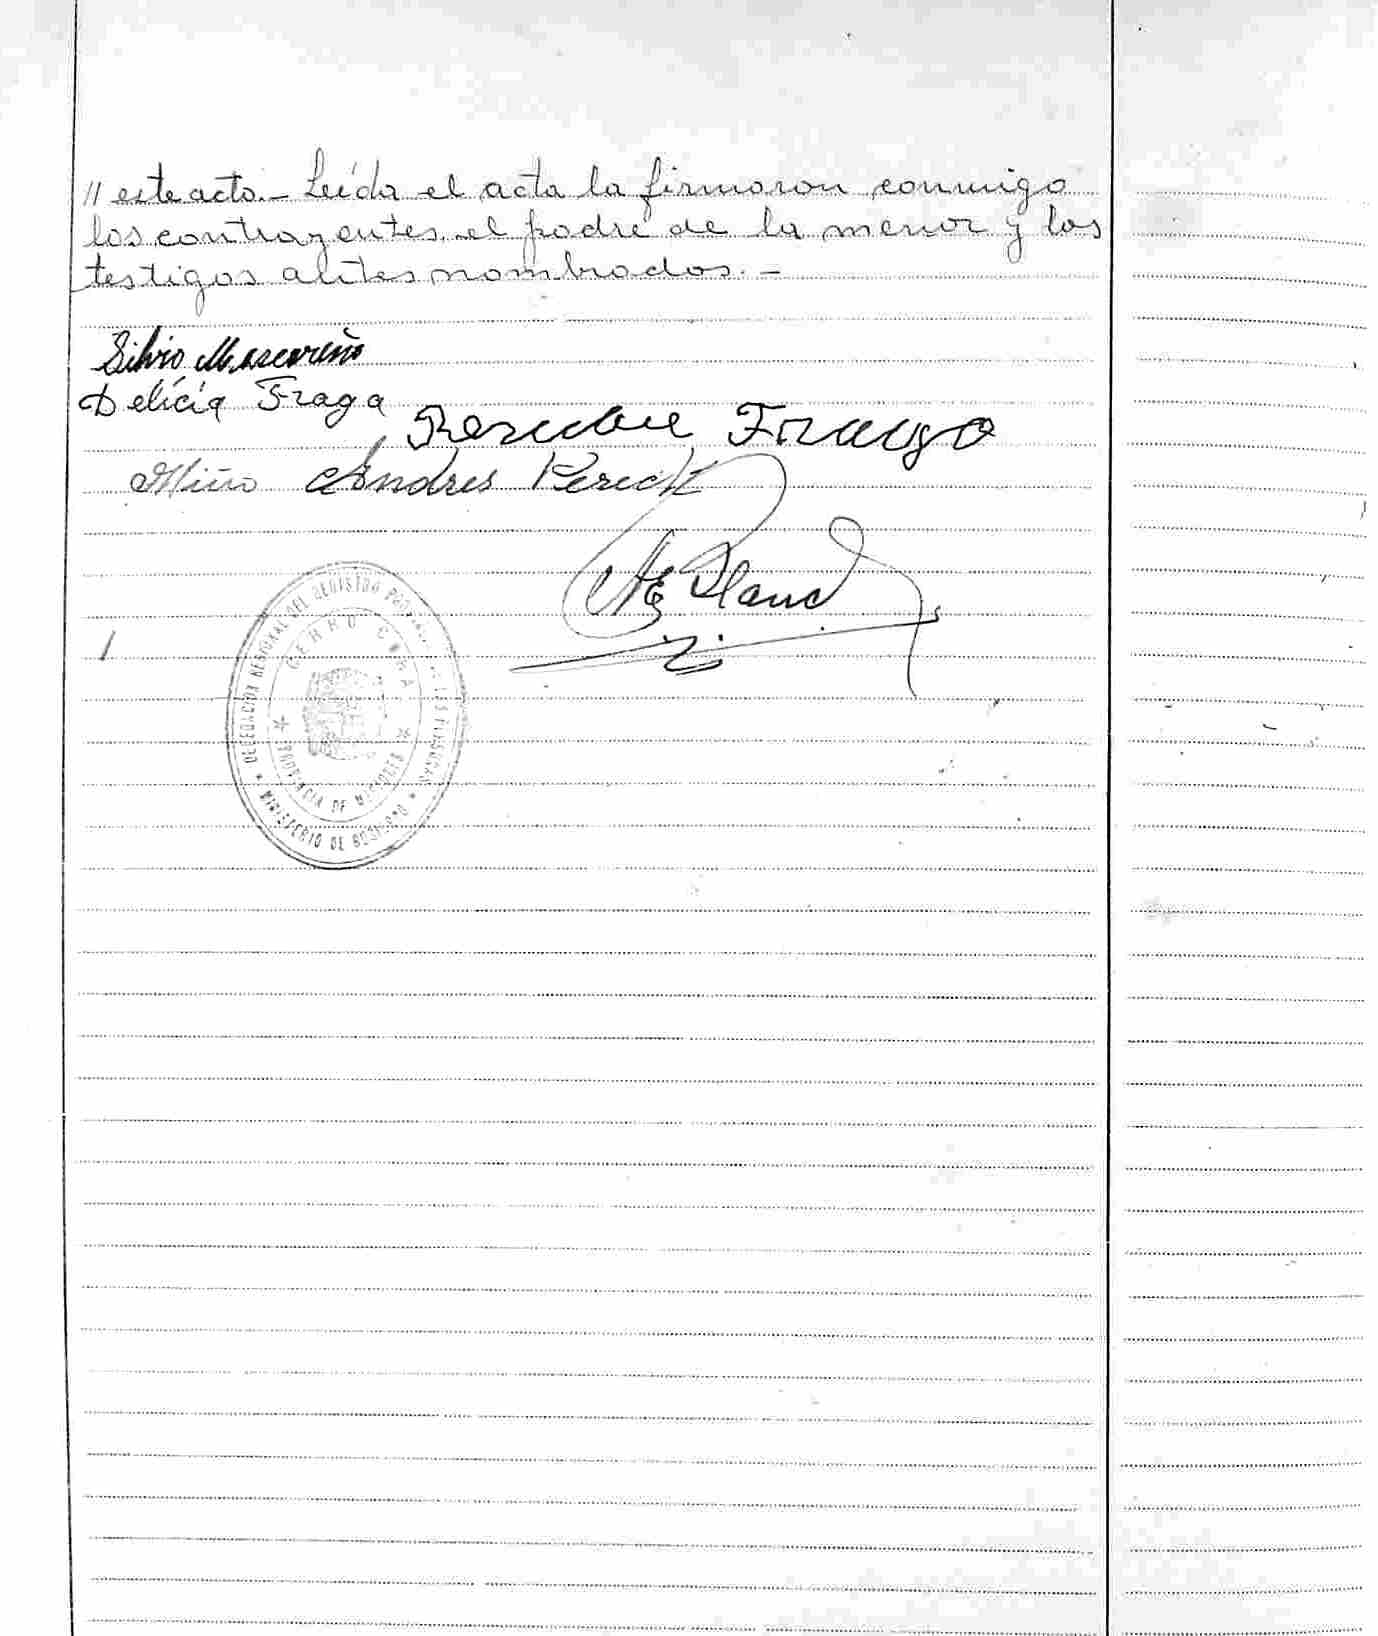 // este acto.- Leída el acta la firmaron conmigo
los contrayentes, el padre de la menor y los
testigos antes nombrados.-
Silvio Mascareño
Delicia Fraga
Fraga
Miño Andres Perick
DELEGACION REGIONAL DEL REGISTRO PROVINCIAL DE LAS PERSONAS
CERRO CORA
PROVINCIA DE MISIONES
MINISTERIO DE GOBIERNO